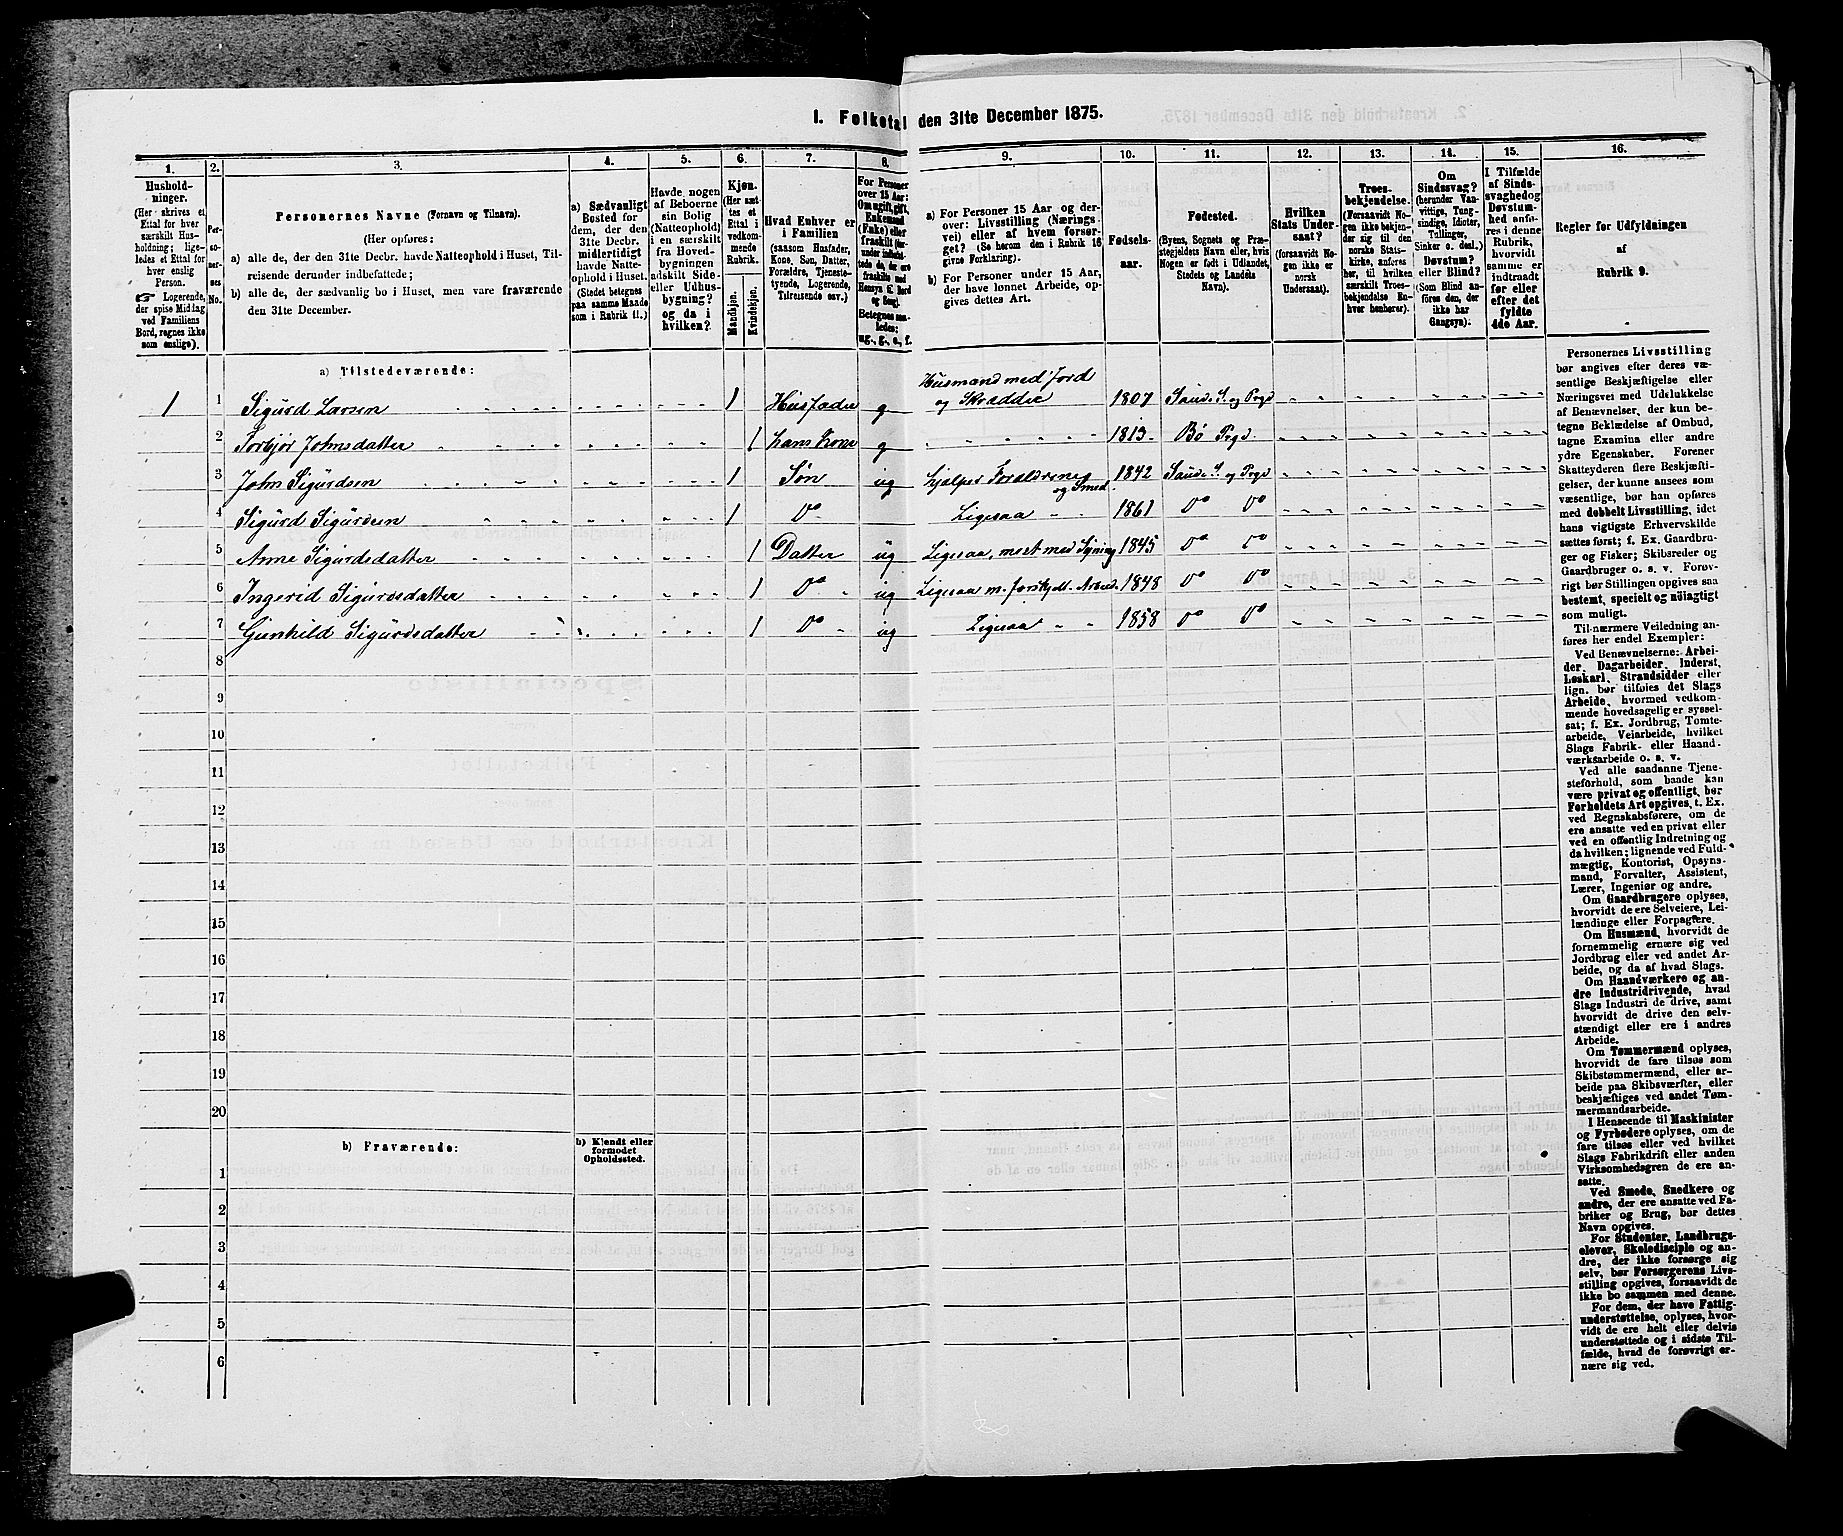 1. Folketal den 31te December 1875.
1. 2. 3. 4. 5. 6. 7. 8. 9. 10. 11. 12. 13. 14. 15. 16.
Hushold-
ninger.
(Her skrives et
Ettal for hver
særskilt Hus-
holdning; lige-
ledes et Ettal for
hver enslig
Person.
☞ Logerende,
der spise Middag
ved Familiens
Bord, regnes ikke
som enslige).
Per-
so-
ner-
nes
No.
Personernes Navne (Fornavn og Tilnavn).
(Her opføres:
a) alle de, der den 31te Decbr. havde Natteophold i Huset, Til-
reisende derunder indbefattede;
b) alle de, der sædvanlig bo i Huset, men vare fraværende
den 31te December.
a) Sædvanligt
Bosted for
dem, der den
31te Decbr.
midlertidigt
havde Natte-
ophold i Huset.
(Stedet betegnes
paa samme Maade
som i Rubrik 11.)
Havde nogen
af Beboerne
sin Bolig
(Natteophold)
i en særskilt
fra Hoved-
bygningen
adskilt Side-
eller Udhus-
bygning?
og da i
hvilken?
Kjøn.
(Her sæt-
tes et
Ettal i
vedkom-
mende
Rubrik.
Mandkjøn.
Kvindekjøn.
Hvad Enhver er
i Familien
(saasom Husfader,
Kone, Søn, Datter,
Forældre, Tjeneste-
tyende, Logerende,
Tilreisende osv.)
For Personer
over 15 Aar:
Om ugift, gift,
Enkemand
(Enke) eller
fraskilt
Betegnes saa-
ledes:
ug., g., e., f.
a) For Personer 15 Aar og der-
over: Livsstilling (Nærings-
vei) eller af hvem forsør-
get? (Se herom den i Rubrik 16
givne Forklaring).
b) For Personer under 15 Aar,
der have lønnet Arbeide, op-
gives dettes Art.
Fødsels-
aar.
Fødested.
(Byens, Sognets og Præ-
stegjeldets Navn eller, hvis
Nogen er født i Udlandet,
Stedets og Landets
Navn).
Hvilken
Stats Under-
saat?
(forsaavidt No-
gen ikke er
norsk
Undersaat).
Troes-
bekjendelse.
(Forsaavidt No-
gen ikke bekjen-
der sig til den
norske Stats-
kirke, anføres
her, til hvilken
særskilt Troes-
bekjendelse En-
hver henhører).
Om
Sindssvag?
(herunder Van-
vittige, Tung-
sindige, Idioter,
Tullinger,
Sinker o. desl.)
Døvstum?
eller Blind?
(Som Blind an-
føres den, der
ikke har
Gangsyn).
I Tilfælde
af Sinds-
svaghed og
Døvstum-
hed anfø-
res i denne
Rubrik,
hvorvidt
samme er
indtraadt
før eller
efter det
fyldte
4de Aar.
Regler for Udfyldningen
af
Rubrik 9.
a) Tilstedeværende:
1 1 Sigurd Larsen 1 Husfader g Husmand med Jord og Skrædder 1807 Saude S. og Prgd
2 Torbjør Johnsdatter 1 hans Kone g 1813 Bø Prgd.
3 John Sigurdsen 1 Søn ug hjælper Forældrene og Smed 1842 Saude S. og Prgd
4 Sigurd Sigurdsen 1 Do Ligesaa 1861 Do Do
5 Anne Sigurdsdatter 1 Datter ug Ligesaa, mest med Syning 1845 Do Do
6 Ingerid Sigurdsdatter 1 Do ug Ligesaa m. forskjell. Arbeid. 1848 Do Do
7 Gunhild Sigurdsdatter 1 Do ug Ligesaa 1858 Do Do
8
9
10
11
12
13
14
15
16
17
18
19
20
b) Fraværende:
b) Kjendt eller
formodet
Opholdssted.
1
2
3
4
5
6
Personernes Livsstilling
bør angives efter deres væ-
sentlige Beskjæftigelse eller
Næringsvei med Udelukkelse
af Benævnelser, der kun be-
tegne Beklædelse af Ombud,
tagne Examina eller andre
ydre Egenskaber. Forener
Skatteyderen flere Beskjæfti-
gelser, der kunne ansees som
væsentlige, bør han opføres
med dobbelt Livsstilling, idet
hans vigtigste Erhvervskilde
sættes først; f. Ex. Gaardbru-
ger og Fisker; Skibsreder og
Gaardbruger o. s. v. Forøv-
rigt bør Stillingen opgives saa
bestemt, specielt og nøiagtigt
som muligt.
Til nærmere Veiledning an-
føres her endel Exempler:
Ved Benævnelserne: Arbei-
der, Dagarbeider, Inderst,
Løskarl, Strandsidder eller
lign. bør tilføies det Slags
Arbeide, hvormed vedkom-
mende hovedsagelig er syssel-
sat; f. Ex. Jordbrug, Tomte-
arbeide, Veiarbeide, hvilket
Slags Fabrik- eller Haand-
værksarbeide o. s. v.
Ved alle saadanne Tjene-
steforhold, som baade kan
være privat og offentligt, bør
Forholdets Art opgives, t. Ex.
ved Regnskabsførere, om de
ere ansatte ved en privat eller
ved en offentlig Indretning og
da hvilken; lignende ved Fuld-
mægtig, Kontorist, Opsyns-
mand, Forvalter, Assistent,
Lærer, Ingeniør og andre.
Om Gaardbrugere oplyses,
hvorvidt de ere Selveiere, Lei-
lændinge eller Forpagtere.
Om Husmænd, hvorvidt de
fornemmelig ernære sig ved
Jordbrug eller ved andet Ar-
beide, og da af hvad Slags.
Om Haandværkere og an-
dre Industridrivende, hvad
Slags Industri de drive, samt
hvorvidt de drive den selv-
stændigt eller ere i andres
Arbeide.
Om Tømmermænd oplyses,
hvorvidt de fare tilsøs som
Skibstømmermænd, eller ar-
beide paa Skibsværfter, eller
beskjæftiges ved andet Tøm-
mermandsarbeide.
I Henseende til Maskinister
og Fyrbødere oplyses, om de
fare tilsøs eller ved hvilket
Slags Fabrikdrift eller anden
Virksomhedsgren de ere an-
satte.
Ved Smede, Snedkere og
andre, der ere ansatte ved Fa-
briker og Brug, bør dettes
Navn opgives.
For Studenter, Landbrugs-
elever, Skoledisciple og an-
dre, der ikke forsørge sig
selv, bør Forsørgerens Livs-
stilling opgives, forsaavidt de
ikke bo sammen med denne.
For dem, der have Fattig-
understøttelse, oplyses, hvor-
vidt de ere helt eller delvis
understøttede og i sidste Til-
fælde, hvad de forøvrigt er-
nære sig ved.